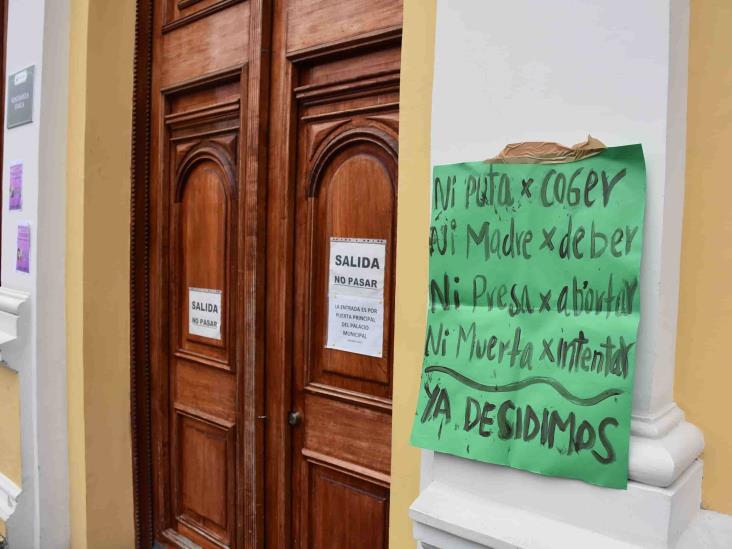 SALIDA
NO PASAR
SALIDA
NO PASAR
LA ENTRADA ES POR
PUERTA PRINCIPAL
DEL PALACIO
MUNICIPAL
Ni puta x coGer
Ni Madre x deber
Ni Presa x abortar
Ni Muerta x intentar
YA DESIDIMOS